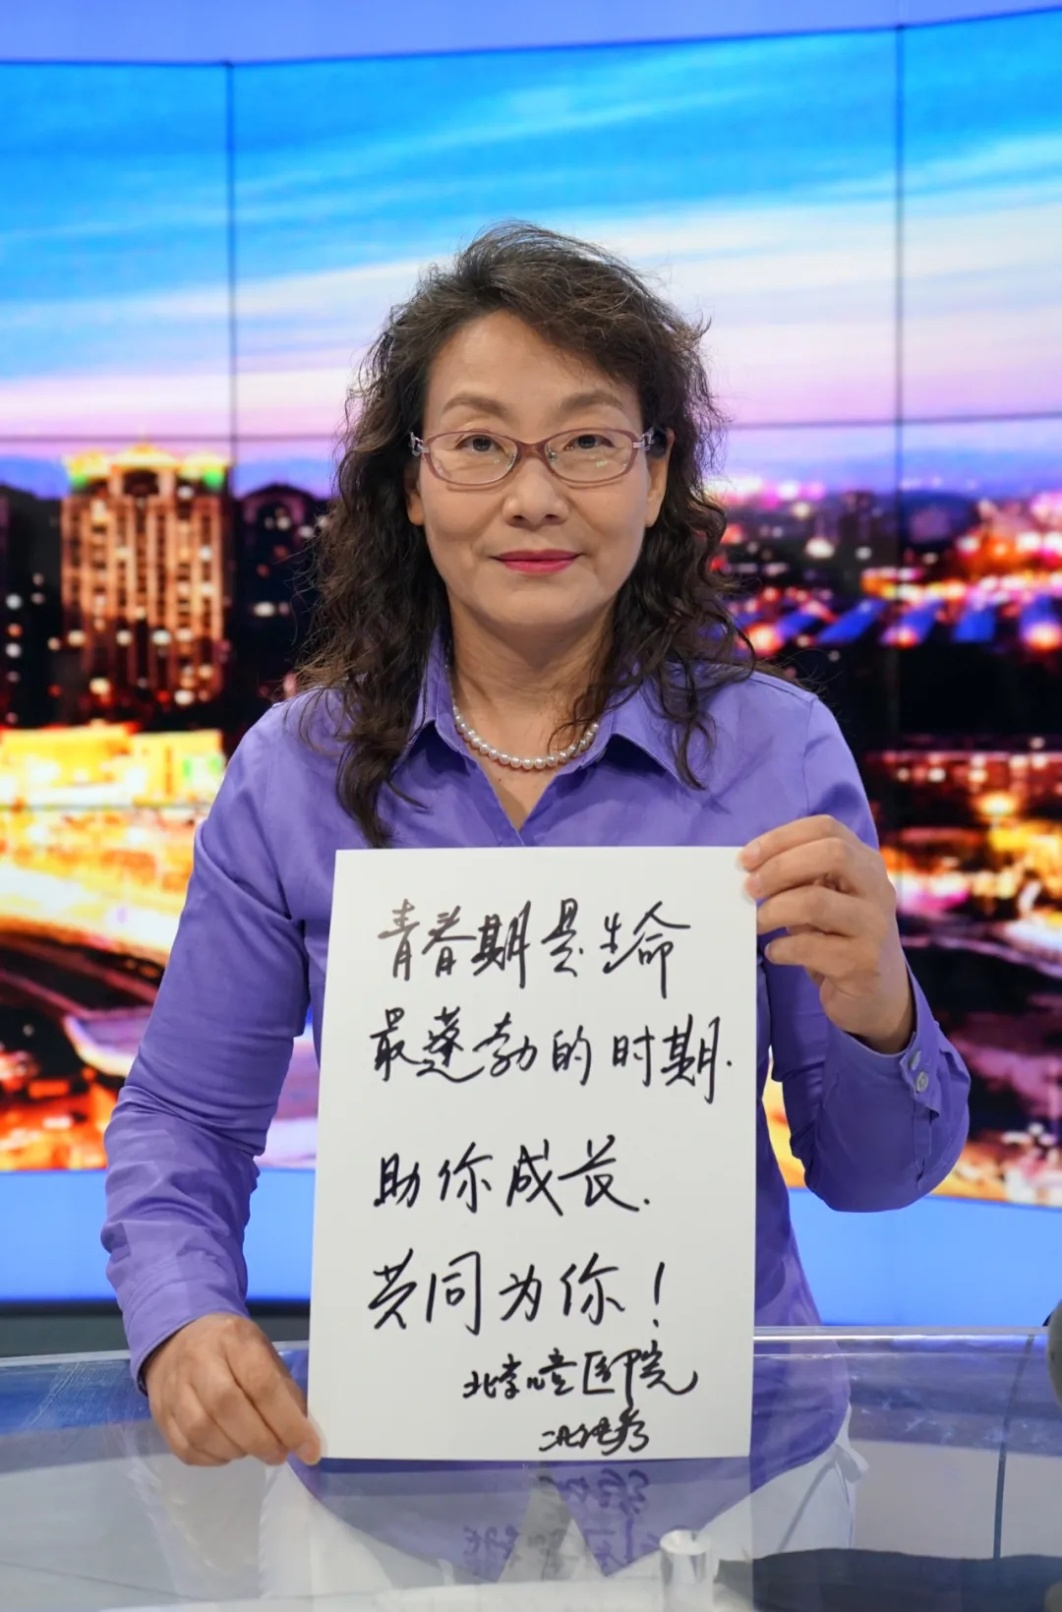 青春期是生命
最蓬勃的时期.
助你成长.
共同为你！
北京儿童医院